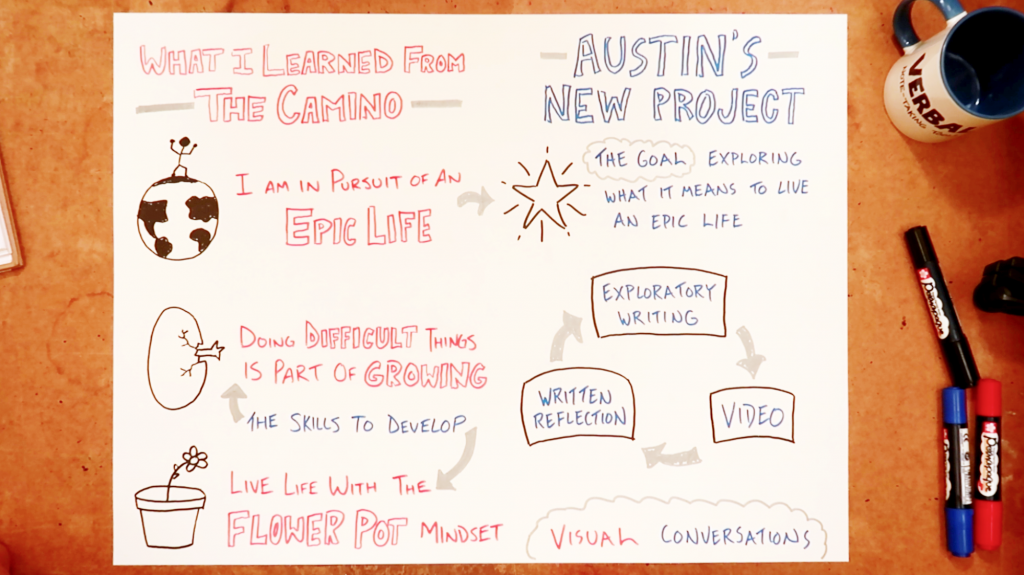 WHAT I LEARNED FROM
THE CAMINO
I AM IN PURSUIT OF AN
EPIC LIFE
DOING DIFFICULT THINGS
IS PART OF GROWING
THE SKILLS TO DEVELOP
LIVE LIFE WITH THE
FLOWER POT MINDSET
AUSTIN'S
NEW PROJECT
THE GOAL EXPLORING
WHAT IT MEANS TO LIVE
AN EPIC LIFE
EXPLORATORY
WRITING
VIDEO
WRITTEN
REFLECTION
VISUAL CONVERSATIONS
VERBA
NOTE-TAKING